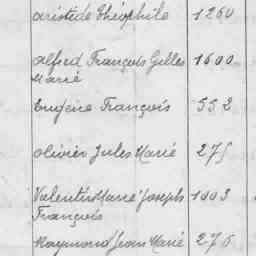 Aristide Théophile 1260
Alfred François Gilles 1600
Marié
Eugène François 552
Olivier Jules Marié 275
Valentin Marie Joseph 1003
François
Raymond Jean Marié 276